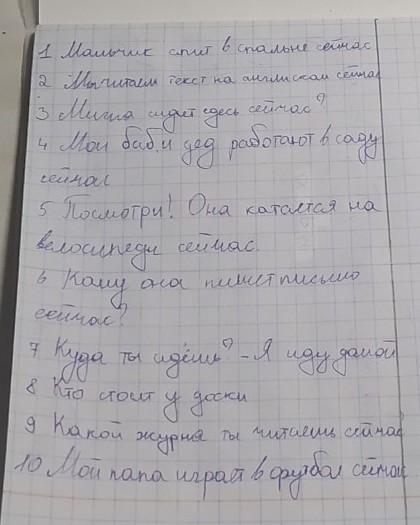 1 Мальчик спит в спальне сейчас
2 Мы читаем текст на английском сейчас
3 Миша сидит здесь сейчас?
4 Мои баб. и дед работают в саду
сейчас
5 Посмотри! Она катается на
велосипеди сейчас.
6 Кому она пишет письмо
сейчас?
7 Куда ты идёшь? - Я иду домой
8 Кто стоит у доски
9 Какой журнал ты читаешь сейчас
10 Мой папа играет в футбол сейчас